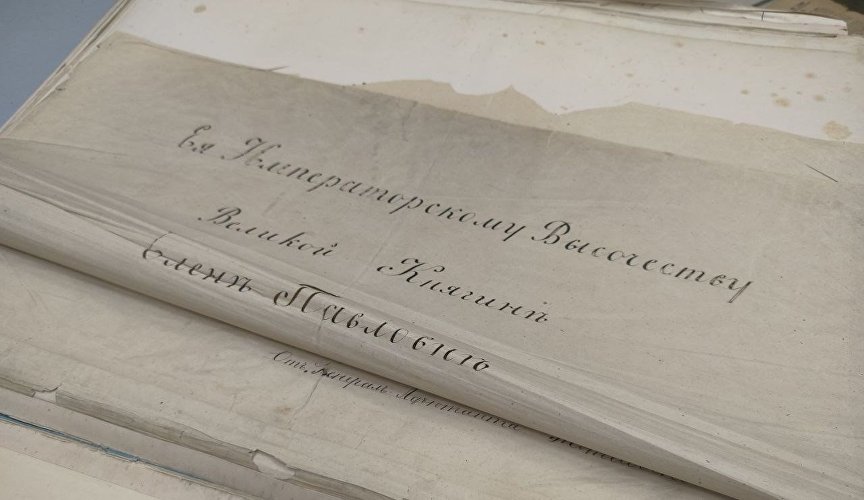 Ея Императорскому Высочеству
Великой Княгинѣ
Еленѣ Павловнѣ
Отъ Генералъ Адъютанта